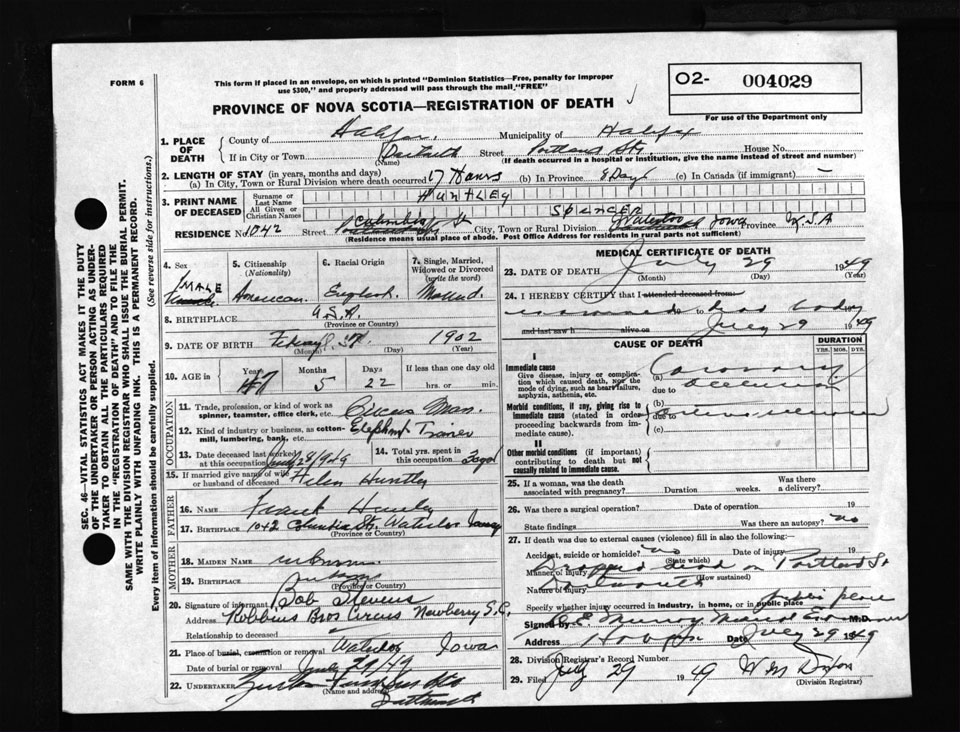 FORM 6
This form if placed in an envelope, on which is printed "Dominion Statistics—Free, penalty for improper
use $300," and properly addressed will pass through the mail "FREE"
O2- 004029
For use of the Department only
PROVINCE OF NOVA SCOTIA—REGISTRATION OF DEATH
1. PLACE OF DEATH
County of Halifax Municipality of Halifax
If in City or Town (Name) Street Portland St. House No.
(If death occurred in a hospital or institution, give the name instead of street and number)
2. LENGTH OF STAY (in years, months and days)
(a) In City, Town or Rural Division where death occurred 17 Hours (b) In Province (c) In Canada (if immigrant) —
3. PRINT NAME OF DECEASED
Surname or Last Name HUNTLEY
All Given or Christian Names SPENCER
RESIDENCE No. 1042 Columbia St City, Town or Rural Division Waterloo Iowa Province U.S.A
(Residence means usual place of abode. Post Office Address for residents in rural parts not sufficient)
4. Sex MALE
5. Citizenship (Nationality) American
6. Racial Origin English
7. Single, Married, Widowed or Divorced (write the word) Married
8. BIRTHPLACE U.S.A. (Province or Country)
9. DATE OF BIRTH (Month) (Day) 1902 (Year)
10. AGE in Years 47 Months 5 Days 22 If less than one day hrs. or min.
OCCUPATION
11. Trade, profession, or kind of work as spinner, teamster, office clerk, etc. Circus Man.
12. Kind of industry or business, as cotton-mill, lumbering, bank, etc. Elephant Trainer
13. Date deceased last worked at this occupation July 28/1949
14. Total yrs. spent in this occupation
15. If married give name of wife or husband of deceased Helen Huntley
FATHER
16. Name Frank Huntley
17. Birthplace 1042 Columbia St. Waterloo (Province or Country)
MOTHER
18. Maiden Name unknown
19. Birthplace (Province or Country)
20. Signature of informant Bob Stevens
Address Robbins Bros Circus Newberry S.C.
Relationship to deceased
21. Place of burial, cremation or removal Waterloo Iowa
Date of burial or removal July 29/49
22. Undertaker (Name and address)
MEDICAL CERTIFICATE OF DEATH
23. DATE OF DEATH July 29 1949
(Month) (Day) (Year)
24. I HEREBY CERTIFY that I attended deceased from
to dead body
and last saw h alive on July 29 1949
CAUSE OF DEATH
DURATION
YRS. MOS. DYS.
I
Immediate cause
Give disease, injury or complication which caused death, not the mode of dying, such as heart failure, asphyxia, asthenia, etc.
(a) Coronary occlusion
due to
Morbid conditions, if any, giving rise to immediate cause (stated in order proceeding backwards from immediate cause).
(b)
due to
(c)
II
Other morbid conditions (if important) contributing to death but not causally related to immediate cause.
25. If a woman, was the death associated with pregnancy? Duration weeks. Was there a delivery?
26. Was there a surgical operation? Date of operation 19
State findings Was there an autopsy? no
27. If death was due to external causes (violence) fill in also the following:
Accident, suicide or homicide? no (State which) Date of injury 19
Manner of injury Dropped dead on Portland St (How sustained)
Nature of injury
Specify whether injury occurred in industry, in home, or in public place public place
Signed by Murray M.D.
Address Date July 29 1949
28. Division Registrar's Record Number
29. Filed July 29 1949 (Division Registrar)
SEC. 46—VITAL STATISTICS ACT MAKES IT THE DUTY
OF THE UNDERTAKER OR PERSON ACTING AS UNDER-
TAKER TO OBTAIN ALL THE PARTICULARS REQUIRED
IN THE "REGISTRATION OF DEATH" AND TO FILE THE
SAME WITH THE DIVISION REGISTRAR WHO SHALL ISSUE THE BURIAL PERMIT.
WRITE PLAINLY WITH UNFADING INK. THIS IS A PERMANENT RECORD.
Every item of information should be carefully supplied. (See reverse side for instructions.)